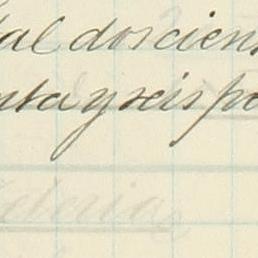 tal doscien
nta y seis po